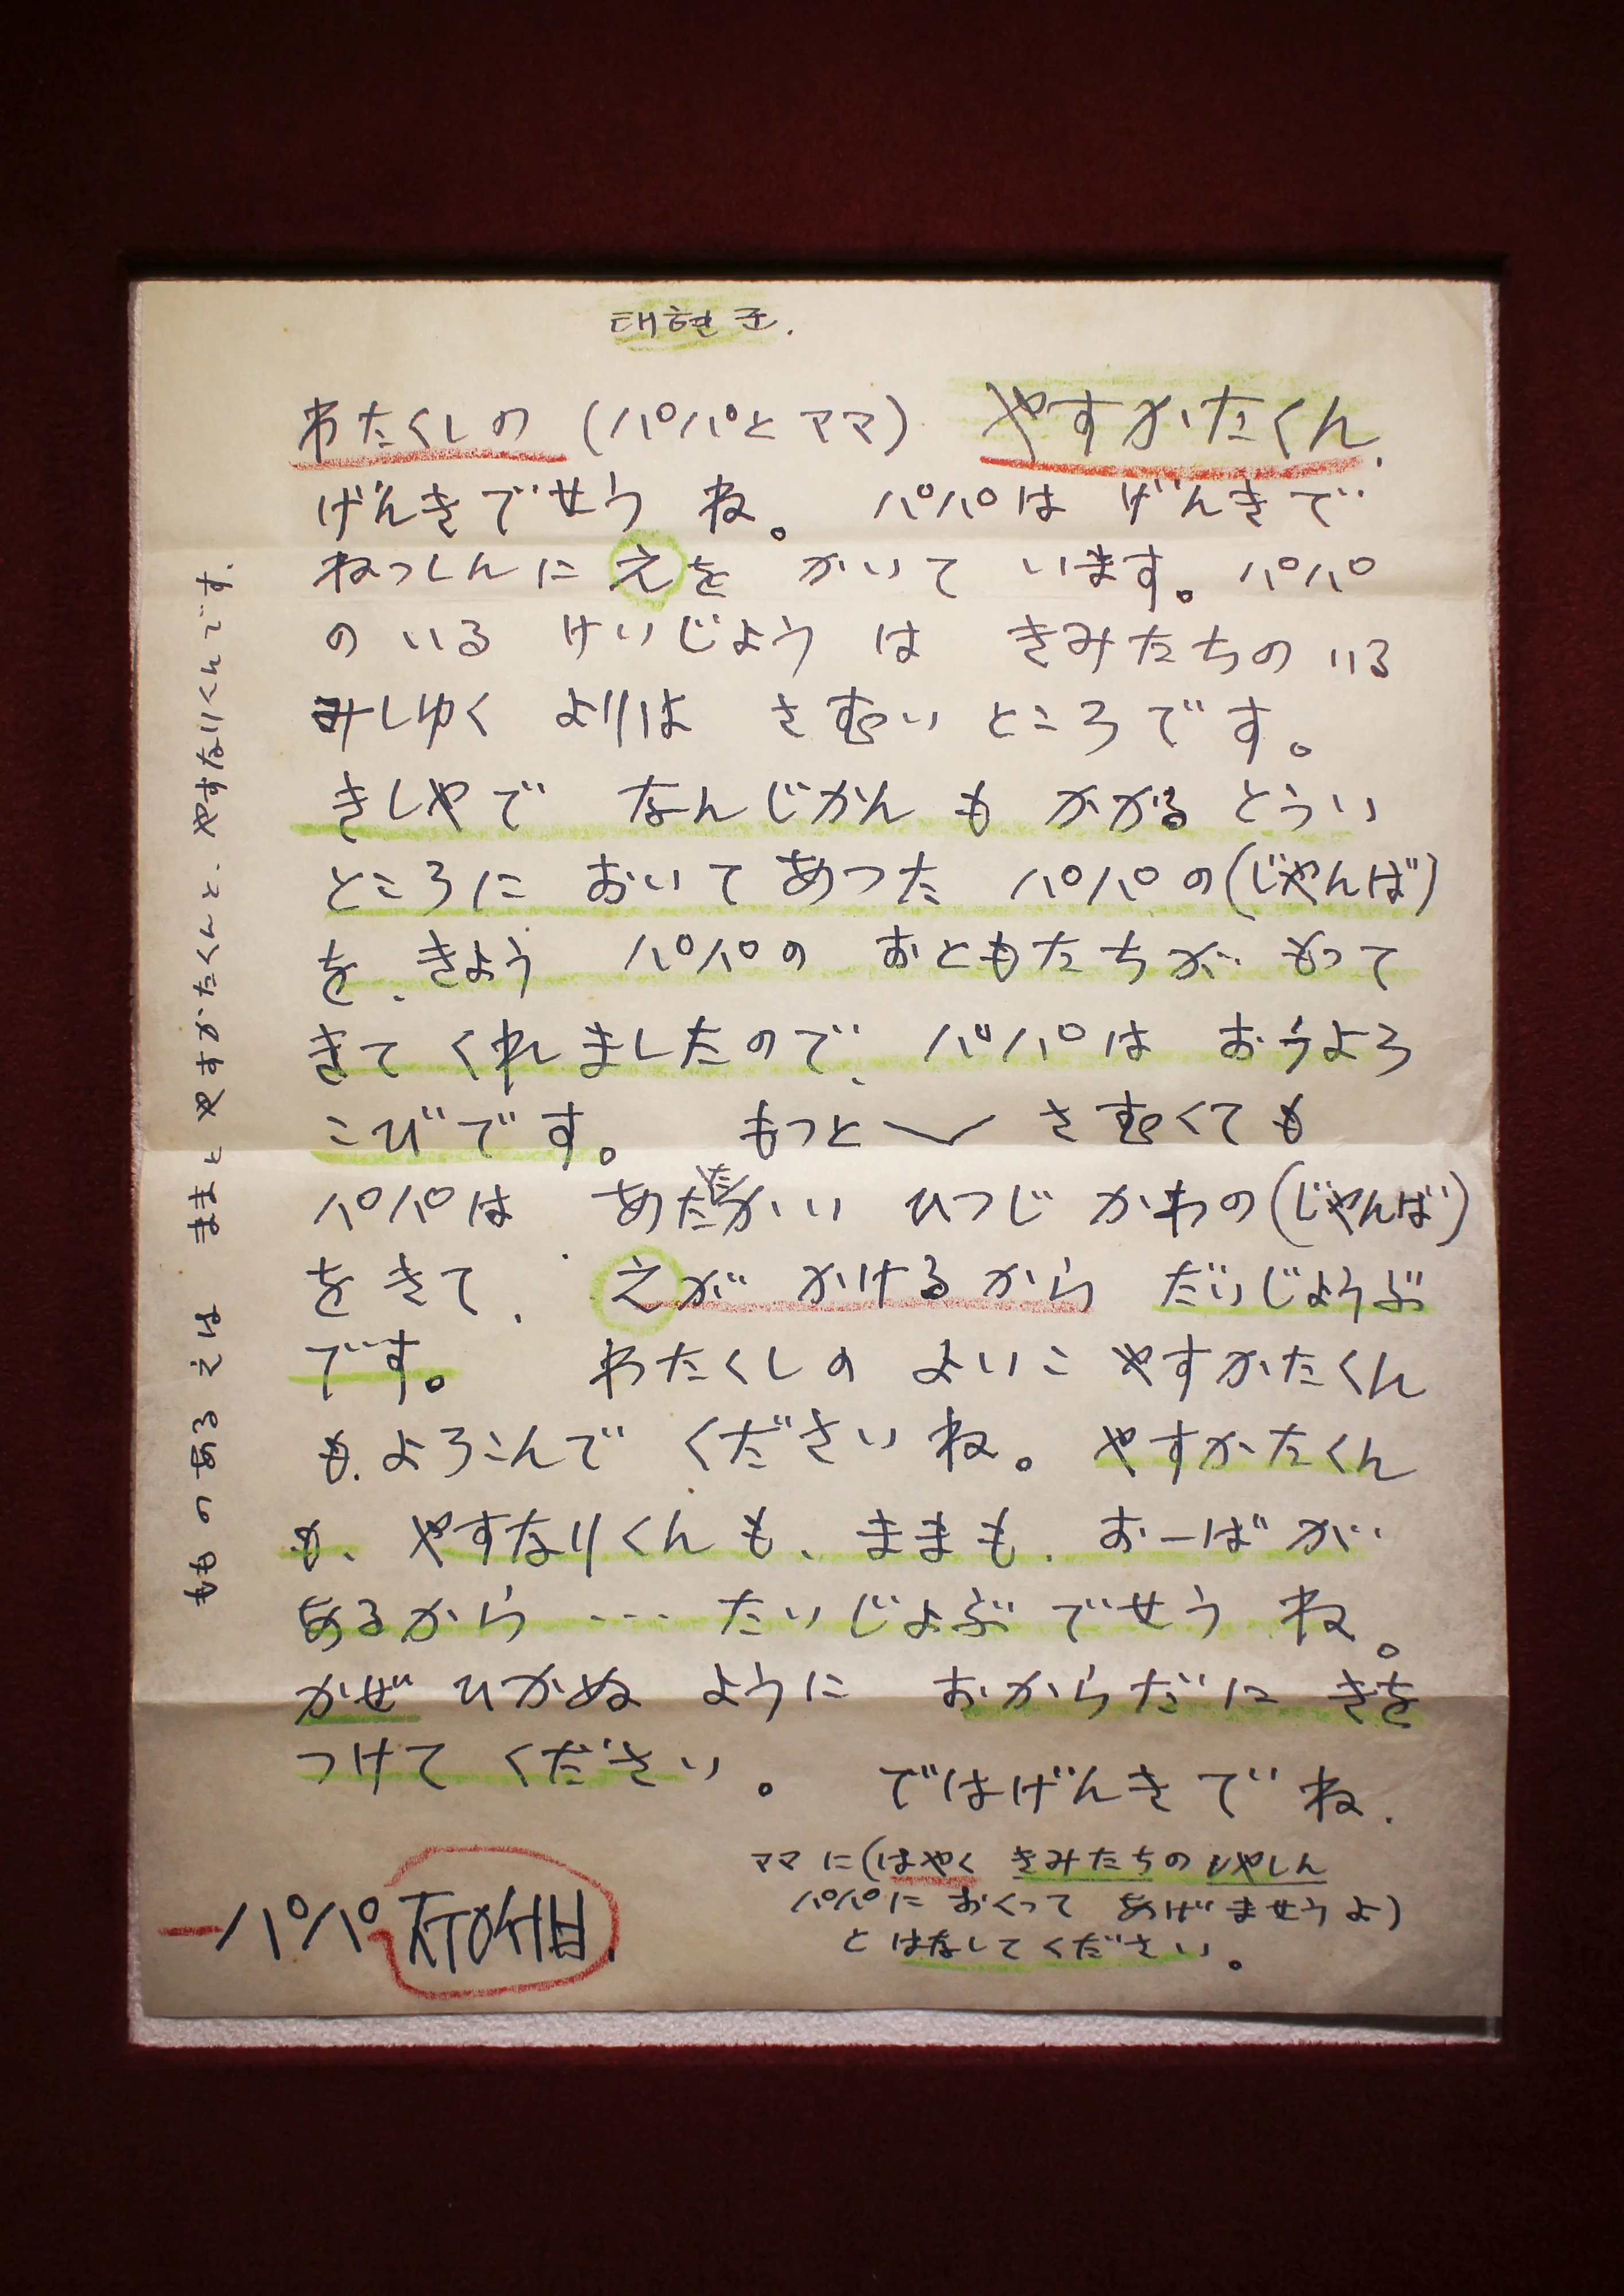 태현군.
わたくしの (パパとママ) やすかたくん.
げんきでせう ね。 パパは げんきで
ねっしんに えを かいて います。パパ
の いる けいじょう は きみたちの いる
みしゆく よりは さむい ところです。
きしやで なんじかん も かかる とうい
ところに おいて あつた パパの(じやんば)
を、きよう パパの おともたちが もって
きて くれましたので、パパは おうよろ
こびです。 もっと〳〵 さむくても
パパは あたたかい ひつじ かわの(じゃんば)
を きて、 えが かけるから だいじようぶ
です。 わたくしの よいこ やすかたくん
も、よろこんで くださいね。やすかたくん
も、やすなりくんも、ままも、おーばが
あるから・・・たいじよぶ でせう ね。
かぜ ひかぬ ように おからだに きを
つけて ください。 ではげんきで ね.
ママ に(はやく きみたちの しやしん
パパに おくって あげ ませうよ)
と はなして ください。
ーパパ ㅈㅜㅇㅅㅓㅂ.
もものある えは ままと やすかたくんと、やすなりくんです.